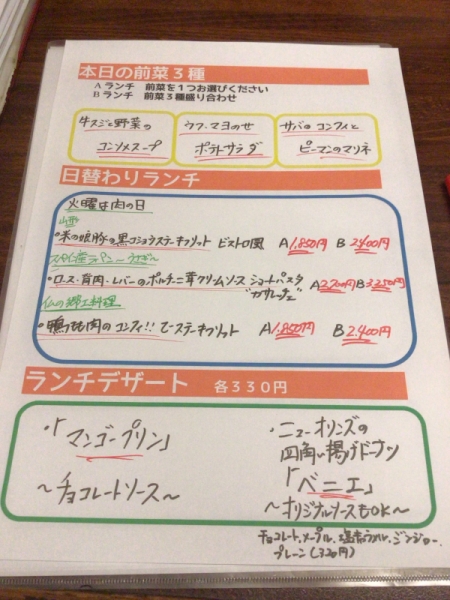 本日の前菜３種
Aランチ 前菜を１つお選びください
Bランチ 前菜３種盛り合わせ
牛スジと野菜の
コンソメスープ
ウフ・マヨのせ
ポテトサラダ
サバのコンフィと
ピーマンのマリネ
日替わりランチ
火曜は肉の日
山形
・米の娘豚の黒コショウステーキフリット ビストロ風 A1,850円 B2,400円
スペイン産ラパン〜うさぎ〜
・ロース・肩肉・レバーのポルチーニ茸クリームソース ショートパスタ A2,700円 B3,250円
"カサレッチェ"
仏の郷土料理
・鴨もも肉のコンフィ!! ステーキフリット A1,850円 B2,400円
ランチデザート 各３３０円
・「マンゴープリン」
〜チョコレートソース〜
・ニューオリンズの
四角い揚げドーナツ
「ベニエ」
〜オリジナルソースもOK〜
チョコレート、メープル、塩キャラメル、ジンジャー、
プレーン(320円)